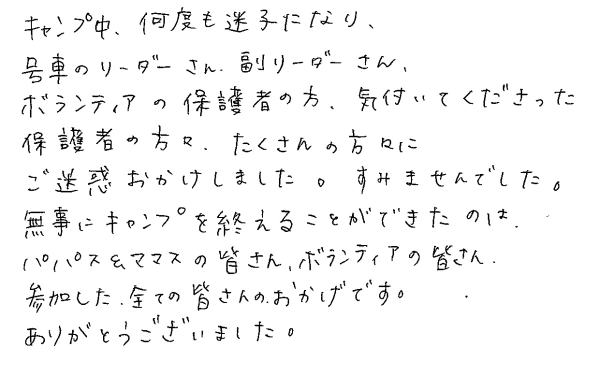 キャンプ中、何度も迷子になり、
号車のリーダーさん、副リーダーさん、
ボランティアの保護者の方、気付いてくださった
保護者の方々、たくさんの方々に
ご迷惑おかけしました。すみませんでした。
無事にキャンプを終えることができたのは、
パパス&ママスの皆さん、ボランティアの皆さん、
参加した、全ての皆さんのおかげです。
ありがとうございました。